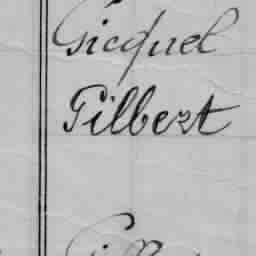 Gicquel
Gilbert